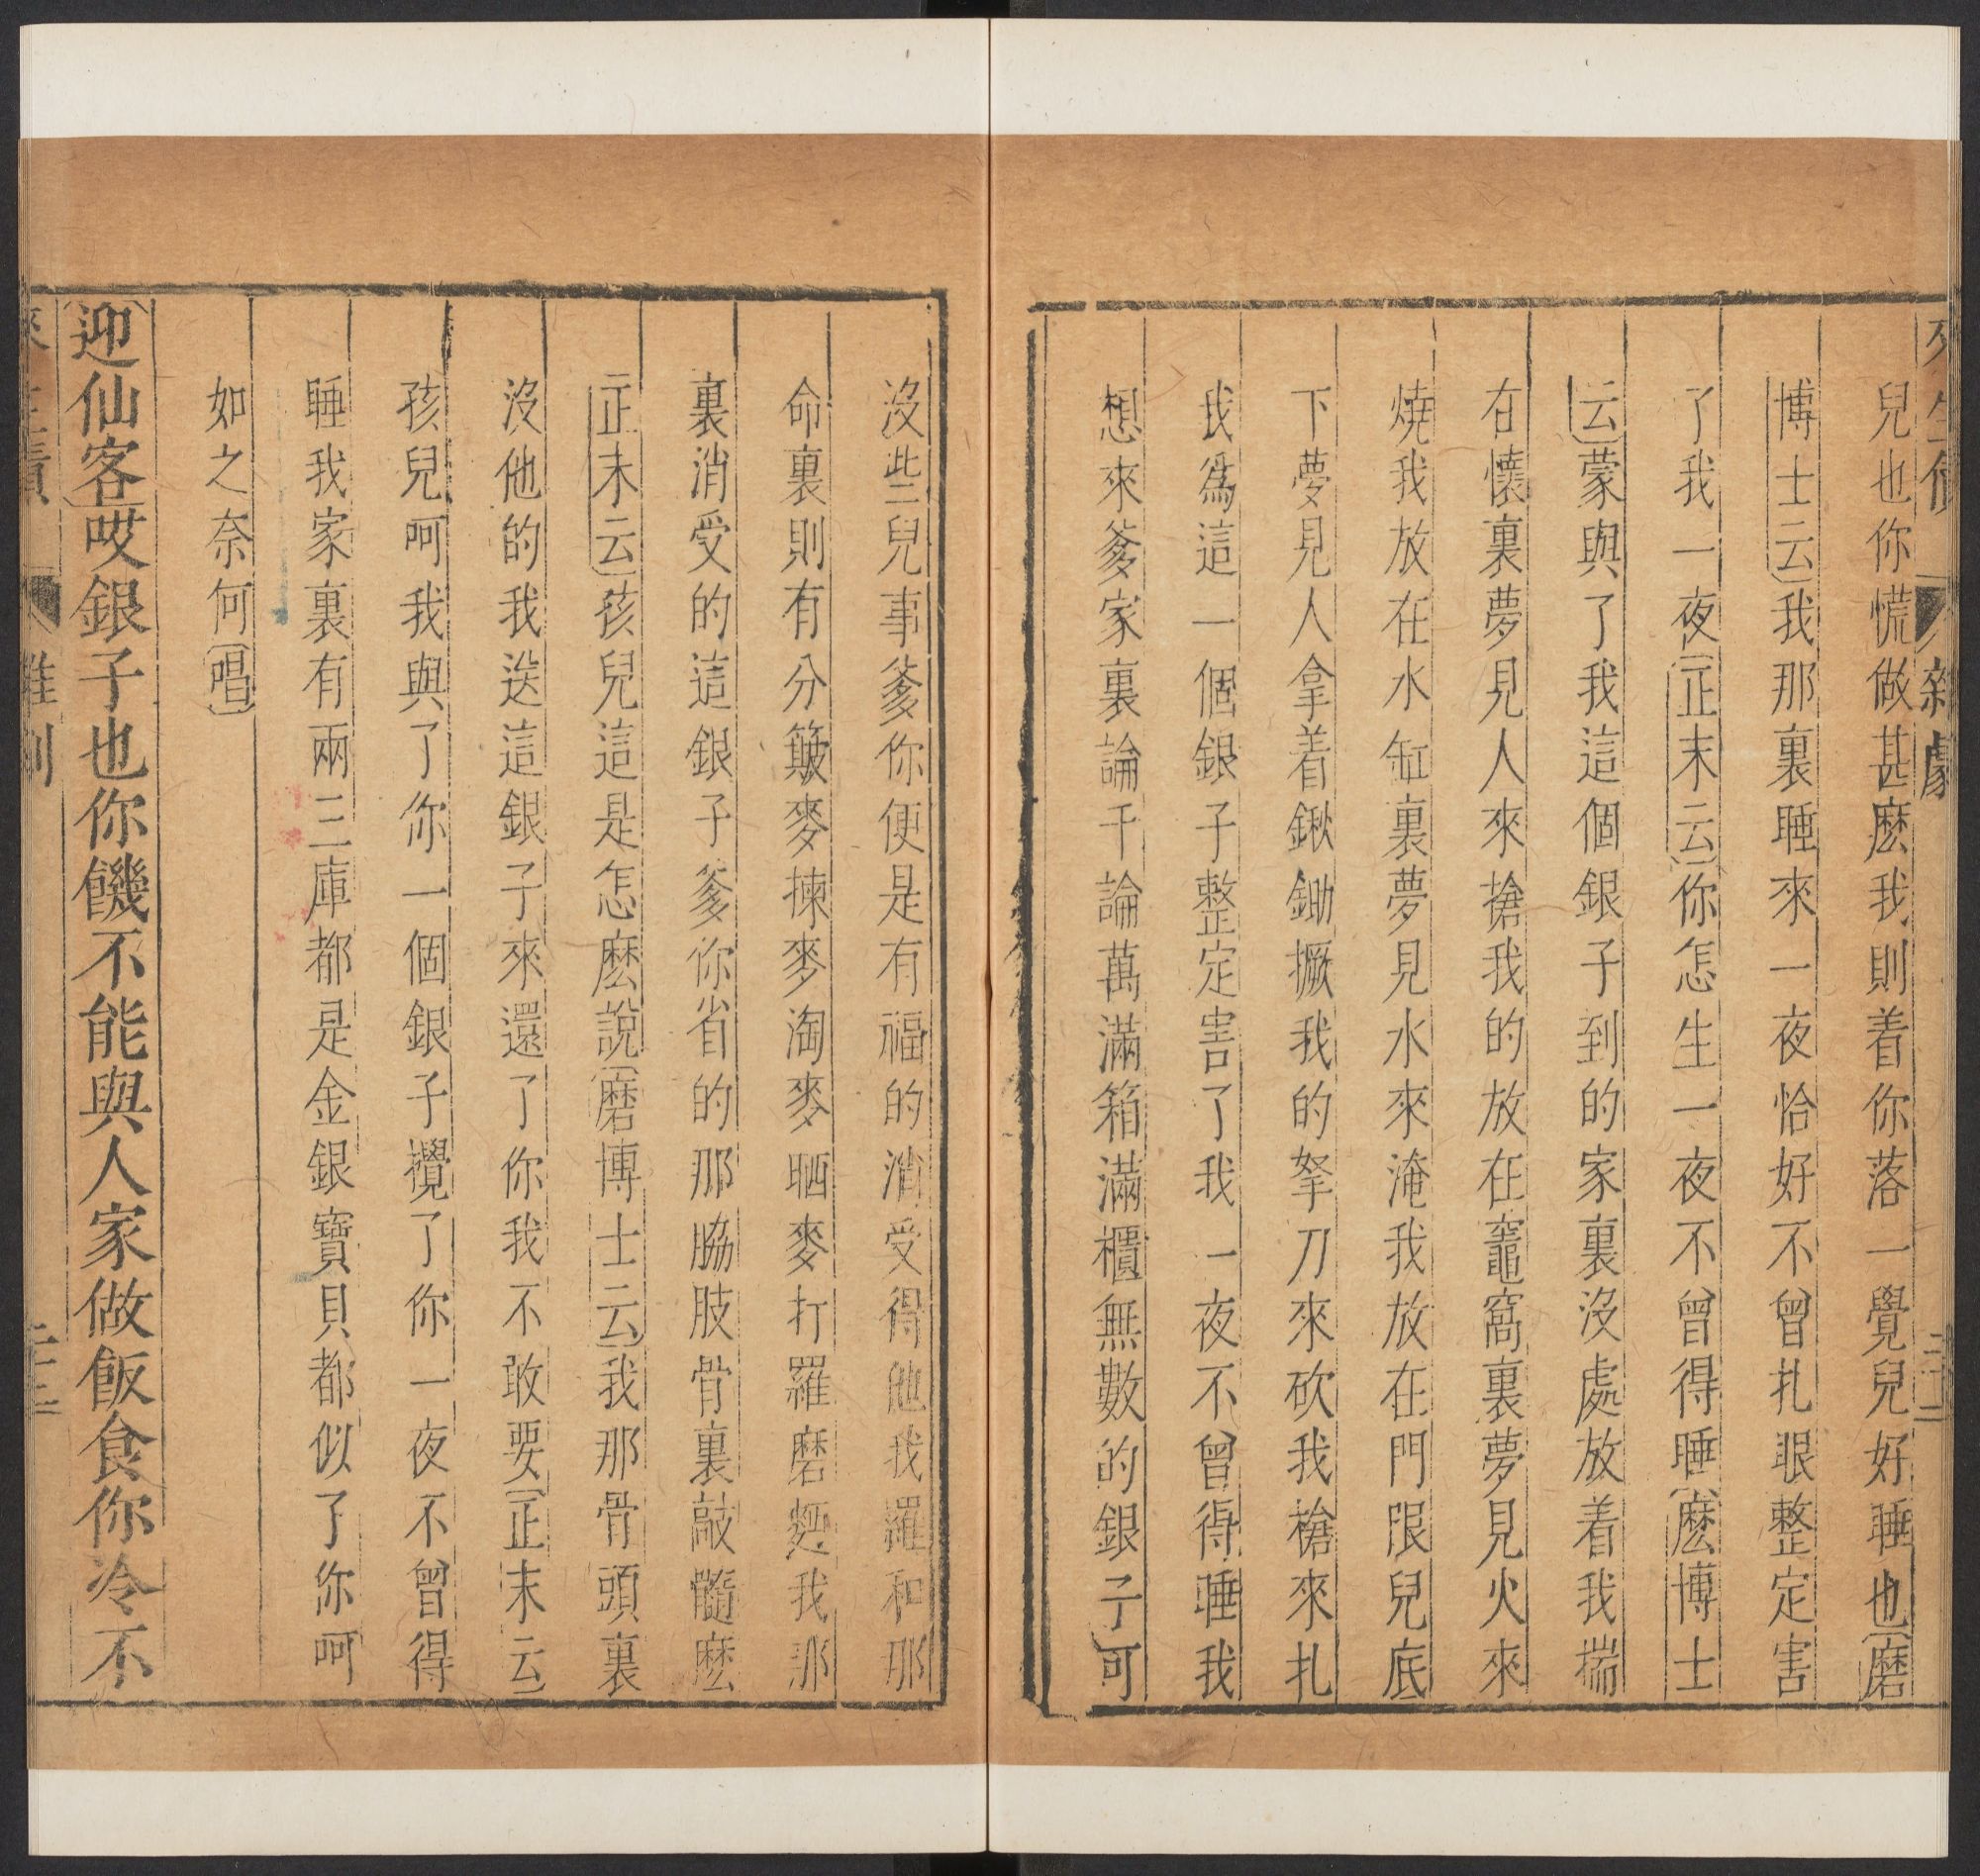 來生債 雜劇 二十二
兒也你慌做甚麽我則着你落一覺兒好睡也(磨
博士云)我那裏睡來一夜恰好不曾扎眼整定害
了我一夜(正末云)你怎生一夜不曾得睡(磨博士
云)蒙與了我這個銀子到的家裏沒處放着我揣
在懷裏夢見人來搶我的放在竈窩裏夢見火來
燒我放在水缸裏夢見水來淹我放在門限兒底
下夢見人拿着鍬鋤撅我的拏刀來砍我槍來扎
我爲這一個銀子整定害了我一夜不曾得睡我
想來爹家裏論千論萬滿箱滿櫃無數的銀子可
沒些兒事爹你便是有福的消受得他我羅和那
命裏則有分簸麥揀麥淘麥晒麥打羅磨麪我那
裏消受的這銀子爹你省的那脇肢骨裏敲髓麽
(正末云)孩兒這是怎麽說(磨博士云)我那骨頭裏
沒他的我送這銀子來還了你我不敢要(正末云)
孩兒呵我與了你一個銀子攪了你一夜不曾得
睡我家裏有兩三庫都是金銀寶貝都似了你呵
如之奈何(唱)
(迎仙客)哎銀子也你饑不能與人家做飯食你冷不
來生債 雜劇 二十三